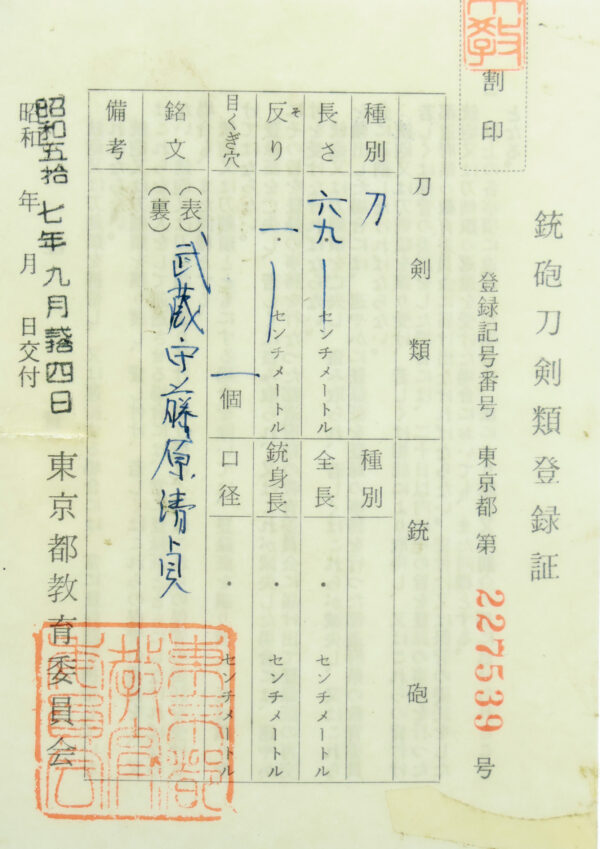 銃砲刀剣類登録証
割印
登録記号番号 東京都 第 227539 号
刀剣類 銃砲
種別 刀 種別
長さ 六九・一 センチメートル 全長 ・ センチメートル
反り そ 一・一 センチメートル 銃身長 ・ センチメートル
目くぎ穴 一個 口径 ・ センチメートル
銘文 (表) 武蔵守藤原清貞
(裏)
備考
昭和五拾七年九月 四日
昭和 年 月 日交付
東京都教育委員会
東京都
教育
委員会